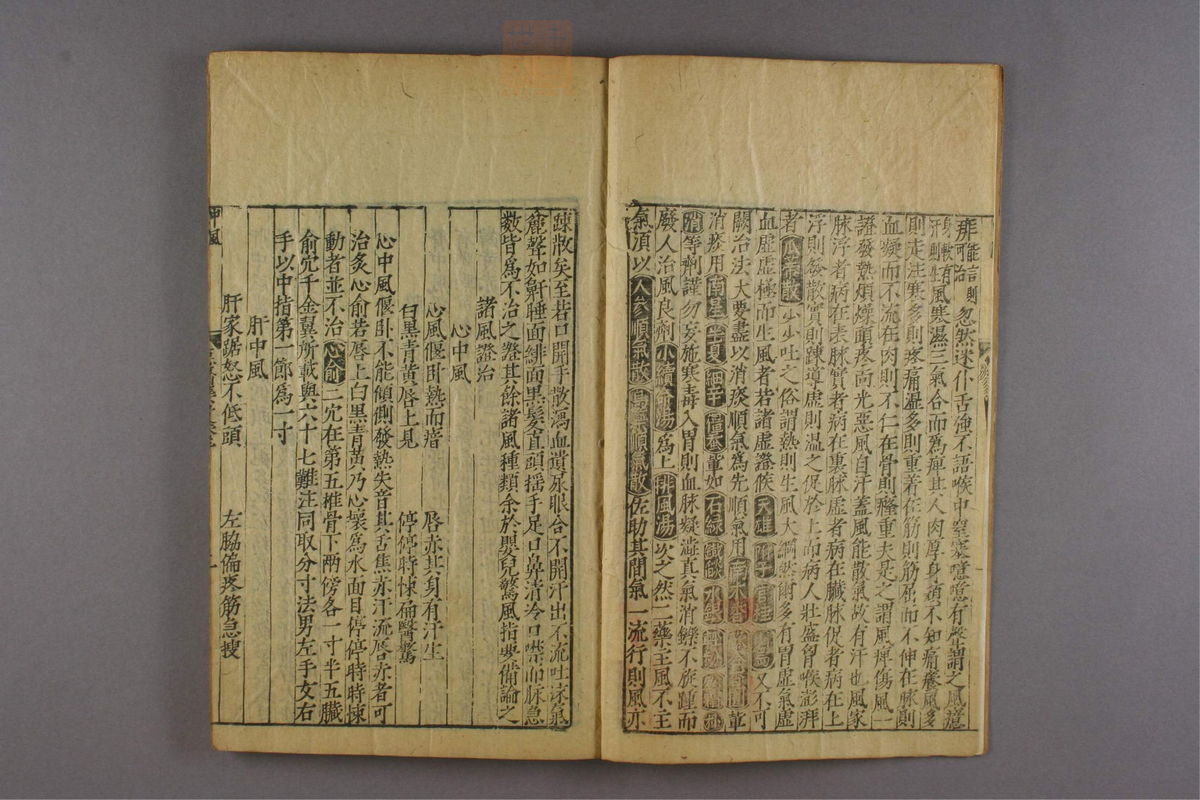 痱能言則可治忽然迷仆舌強不語喉中窒塞噫噫有聲謂之風癔
身軟有汗則生風寒濕三氣合而為痺其人肉厚身頑不知痛癢風多
則走注寒多則疼痛濕多則重着在筋則筋屈而不伸在脉則
血凝而不流在肉則不仁在骨則癃重夫是之謂風痺傷風一
證發熱煩燥頭疼向光惡風自汗蓋風能散氣故有汗也風家
脉浮者病在表脉實者病在裏脉虛者病在臟脉促者病在上
浮則發散實則踈導虛則温之促於上而病人壯盛胷喉澎湃
者瓜蒂散少少吐之俗謂熱則生風大綱然爾多有胃虛氣虛
血虛虛極而生風者若諸虛證候天雄附子官桂川烏又不可
闕治法大要盡以消痰順氣為先順氣用南木香
消痰用南星半夏細辛僵蚕輩如石綠鐵𦦨水銀
消等劑謹勿妄施寒毒入胃則血脉凝澁真氣消鑠不旋踵而
廢人治風良劑小續命湯為上排風湯次之然二藥主風不主
氣湏以人參順氣散烏藥順氣散佐助其間氣一流行則風亦
踈散矣至若口開手散瀉血遺尿眼合不開汗出不流吐沫氣
麄聲如鼾睡面緋面黑髮直頭揺手足口鼻清冷口噤而脉急
數皆為不治之證其餘諸風種類余於嬰兒驚風指要備論之
諸風證治
心中風
心風偃卧熱而瘖 唇赤其身有汗生
白黑青黃唇上見 停停時悚痛醫驚
心中風偃卧不能傾側發熱失音其舌焦赤汗流唇赤者可
治灸心俞若唇上白黑青黃乃心壞為水面目停停時時悚
動者並不治心俞二穴在第五椎骨下兩傍各一寸半五臟
俞宂千金翼所載與六十七難注同取分寸法男左手女右
手以中指第二節為一寸
肝中風
肝家踞怒不低頭 左脇偏疼筋急搜
中風